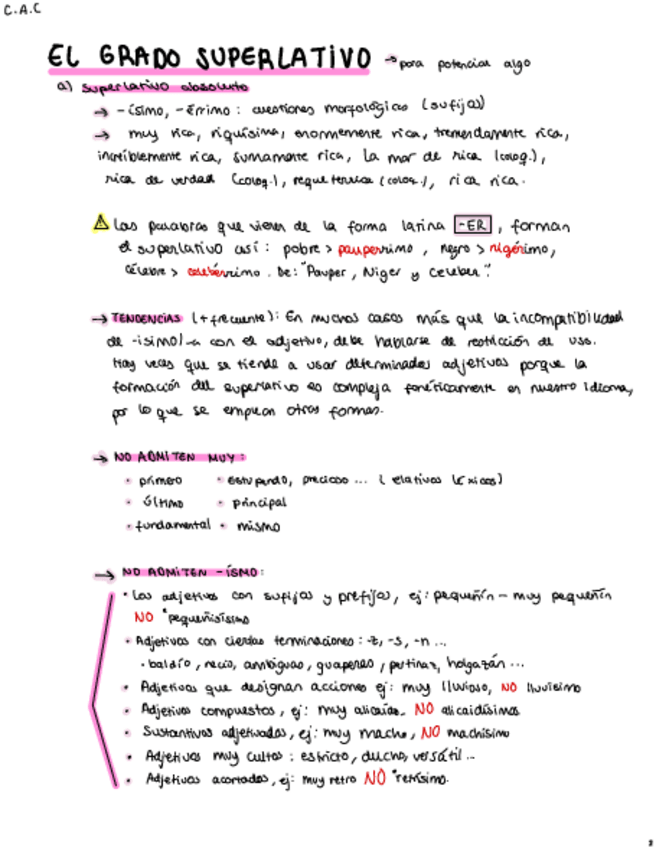 C.A.C
EL GRADO SUPERLATIVO → para potenciar algo
a) superlativo absoluto
→ -ísimo, -érrimo : cuestiones morfológicas (sufijos)
→ muy rica, riquísima, enormemente rica, tremendamente rica,
increíblemente rica, sumamente rica, la mar de rica (coloq.),
rica de verdad (coloq.), requeterrica (coloq.), rica rica.
⚠ Las palabras que vienen de la forma latina -ER, forman
el superlativo así : pobre > paupérrimo, negro > nigérrimo,
célebre > celebérrimo. De: "Pauper, Niger y Celeber".
→ TENDENCIAS (+ frecuente): En muchos casos más que la incompatibilidad
de -ísimo/-a con el adjetivo, debe hablarse de restricción de uso.
Hay veces que se tiende a usar determinados adjetivos porque la
formación del superlativo es compleja fonéticamente en nuestro idioma,
por lo que se emplean otras formas.
→ NO ADMITEN MUY:
• primero • estupendo, precioso ... (elativos léxicos)
• último • principal
• fundamental • mismo
→ NO ADMITEN -ÍSMO:
• Los adjetivos con sufijos y prefijos, ej: pequeñín - muy pequeñín
NO *pequeñisísimo
• Adjetivos con ciertas terminaciones : -z, -s, -n ...
• baldío, necio, ambiguas, guaperas, pertinaz, holgazán ...
• Adjetivos que designan acciones ej: muy lluvioso, NO lluvísimo
• Adjetivos compuestos, ej: muy alicaído. NO alicaidísimos
• Sustantivos adjetivados, ej: muy macho, NO machísimo
• Adjetivos muy cultos : estricto, ducho, versátil ...
• Adjetivos acortados, ej: muy retro NO *retrísimo.